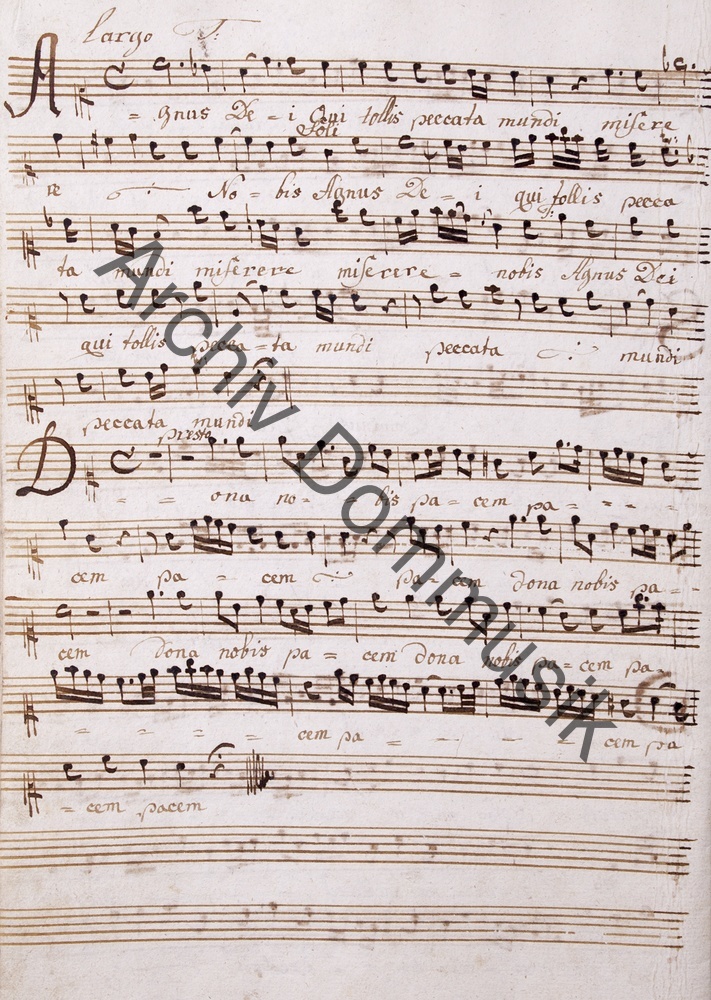 Largo T:
A = gnus De = i Qui tollis peccata mundi misere
Soli
re No = bis Agnus De = i qui tollis pecca
ta mundi miserere miserere = nobis Agnus Dei
qui tollis pecca = ta mundi peccata mundi
peccata mundi
presto
D = = ona no = = bis pa = cem pa = - - -
cem pa = cem pa = cem dona nobis pa = -
cem dona nobis pa = cem dona nobis pa = cem pa
= = = = cem pa = - - = cem pa
= cem pacem
Archiv Dommusik